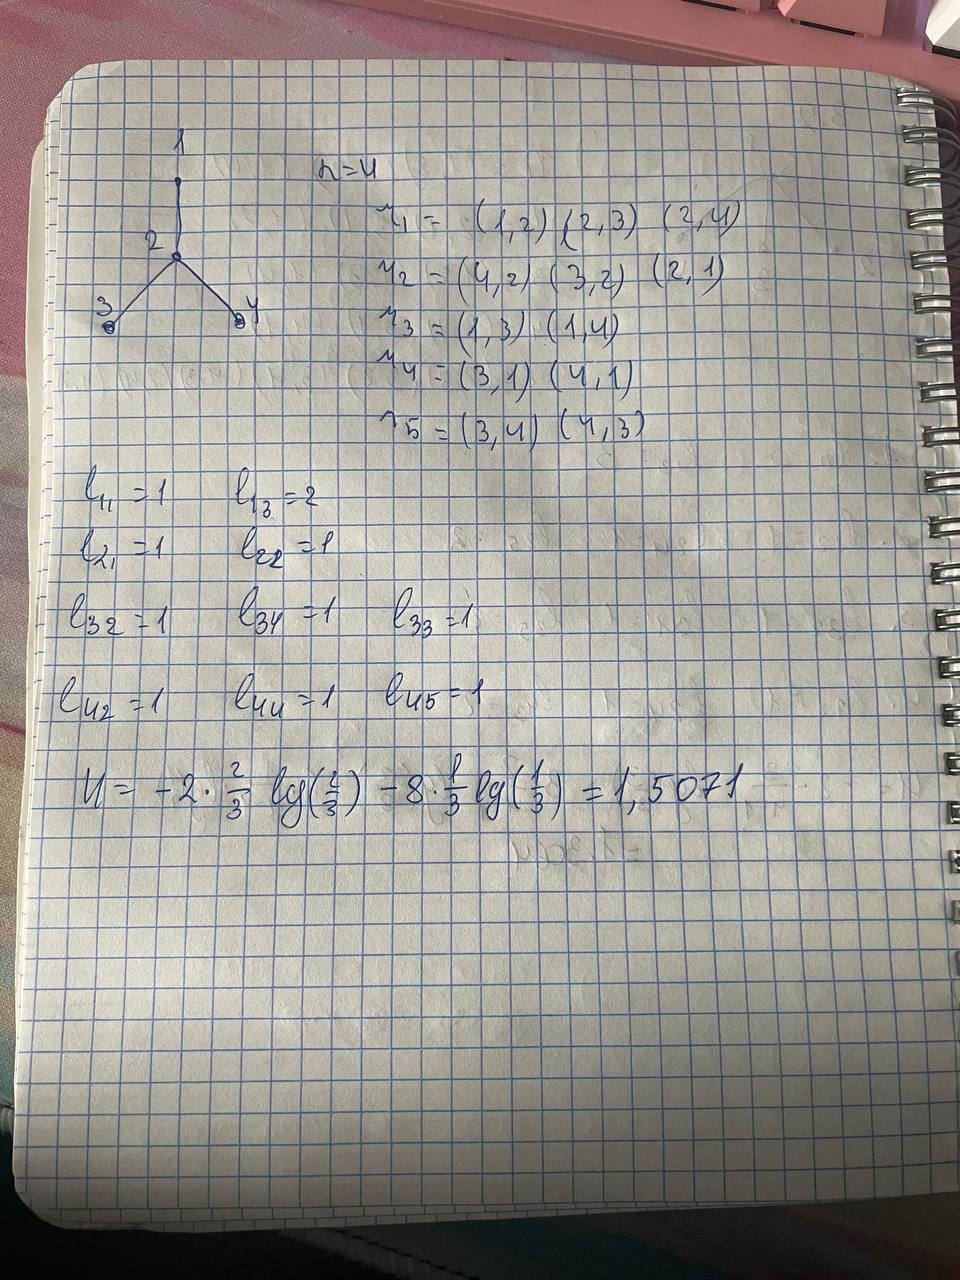 1
n=4
2
3
4
r1 = (1,2) (2,3) (2,4)
r2 = (4,2) (3,2) (2,1)
r3 = (1,3) (1,4)
r4 = (3,1) (4,1)
r5 = (3,4) (4,3)
l11 = 1 l13 = 2
l21 = 1 l22 = 1
l32 = 1 l34 = 1 l33 = 1
l42 = 1 l44 = 1 l45 = 1
H = -2 · 2/3 lg(2/3) - 8 · 1/3 lg(1/3) = 1,5071